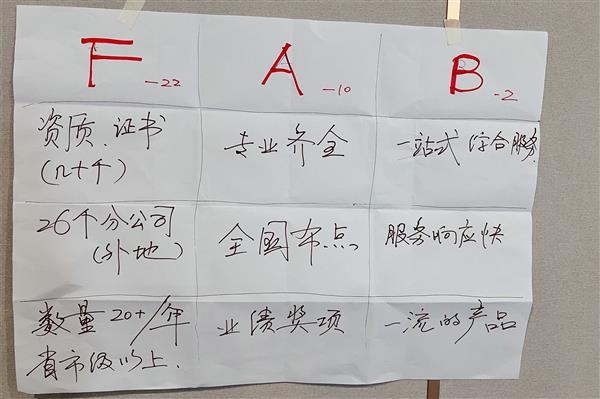 F -22
A -10
B -2
资质、证书
(几十个)
专业齐全
一站式综合服务
26个分公司
(外地)
全国布点
服务响应快
数量20+/年
省市级以上.
业绩奖项
一流的产品